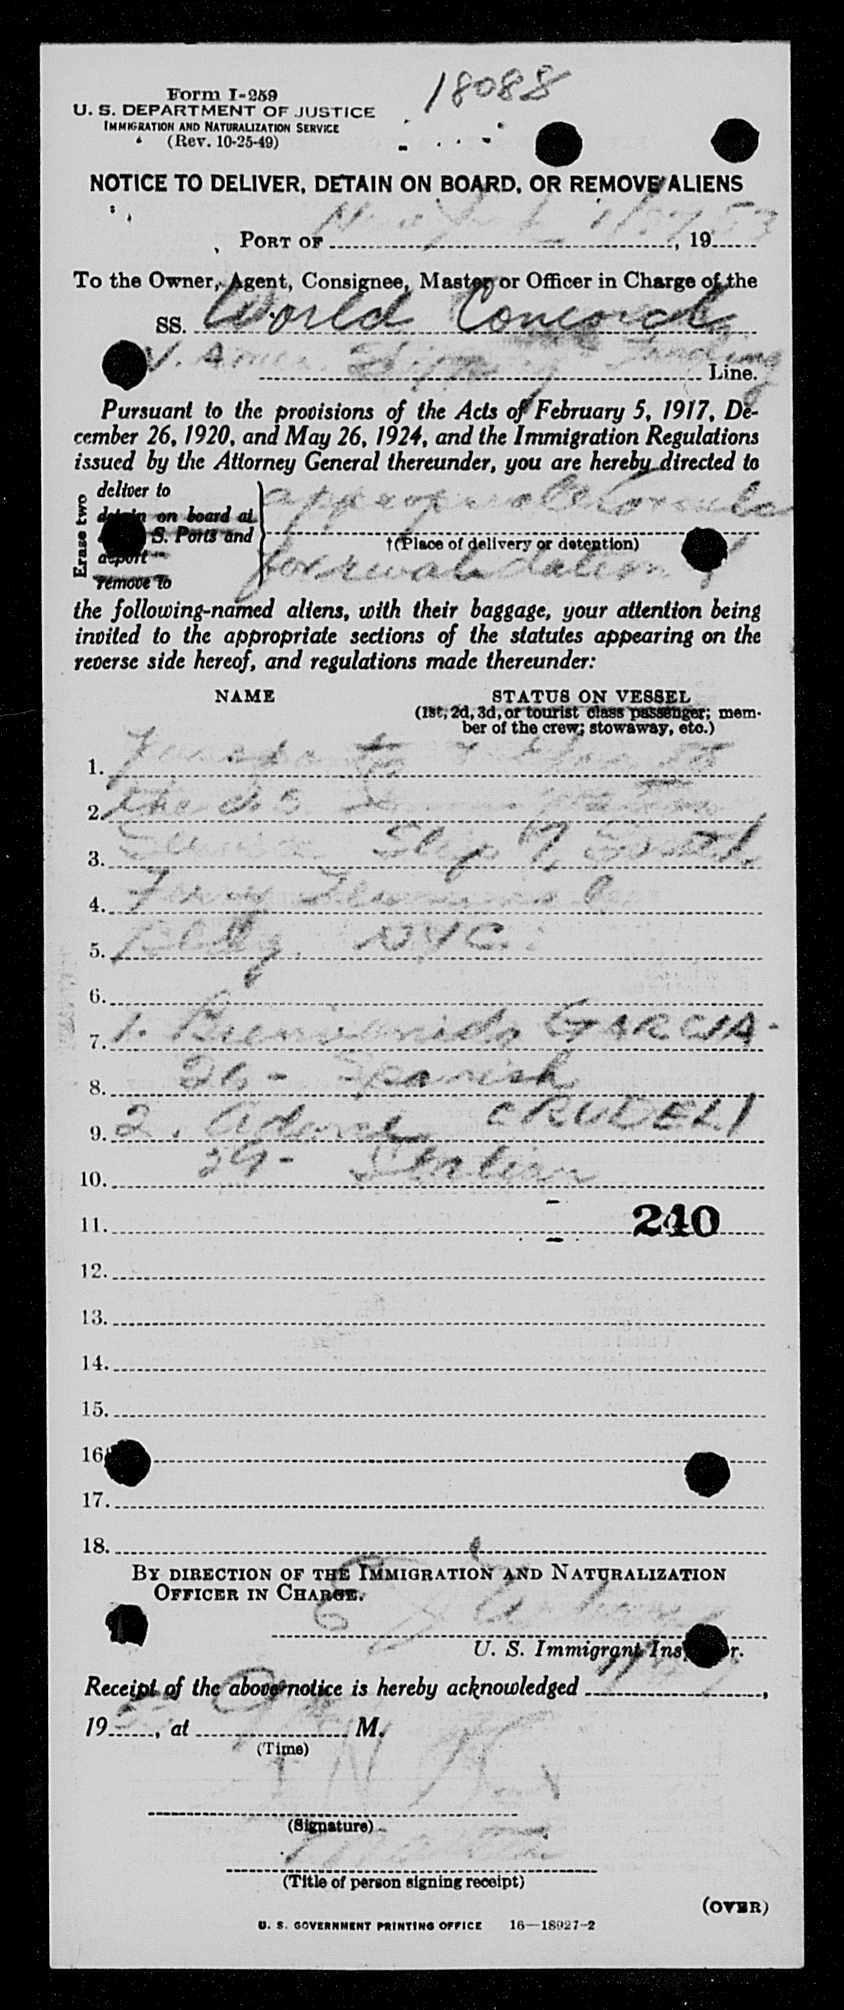 Form I-259
18088
U. S. DEPARTMENT OF JUSTICE
IMMIGRATION AND NATURALIZATION SERVICE
(Rev. 10-25-49)
NOTICE TO DELIVER, DETAIN ON BOARD, OR REMOVE ALIENS
PORT OF New York 19 53
To the Owner, Agent, Consignee, Master or Officer in Charge of the
SS. World Concord
Line.
Pursuant to the provisions of the Acts of February 5, 1917, De-
cember 26, 1920, and May 26, 1924, and the Immigration Regulations
issued by the Attorney General thereunder, you are hereby directed to
Erase two
deliver to
detain on board at
S. Ports and
deport
remove to
appropriate Consulate
†(Place of delivery or detention)
for revalidation of
the following-named aliens, with their baggage, your attention being
invited to the appropriate sections of the statutes appearing on the
reverse side hereof, and regulations made thereunder:
NAME
STATUS ON VESSEL
(1st, 2d, 3d, or tourist class passenger; mem-
ber of the crew; stowaway, etc.)
1. to
2. the
3. Slip 7, South
4. Ferry
5. Bldg. NYC.
6.
7. 1. Bienvenido GARCIA-
8. 26- Spanish
9. 2. CRUDELI
10. 29- Italian
11. 240
12.
13.
14.
15.
16.
17.
18.
BY DIRECTION OF THE IMMIGRATION AND NATURALIZATION
OFFICER IN CHARGE.
U. S. Immigrant r.
Receipt of the above notice is hereby acknowledged ,
19 , at M.
(Time)
(Signature)
(Title of person signing receipt)
(OVER)
U. S. GOVERNMENT PRINTING OFFICE 16—18927-2